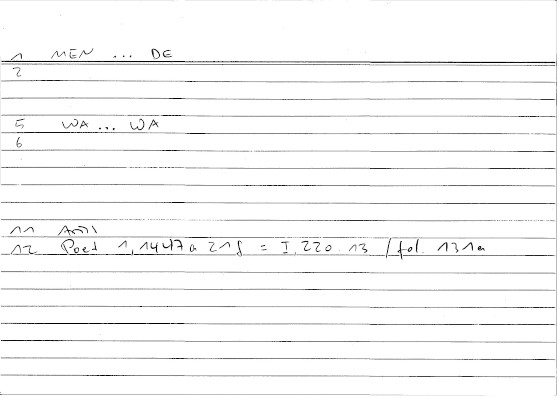 1 MEN ... DE
2
5 WA ... WA
6
11
12 Poet 1, 1447a 21f = I, 220. 13 / fol. 131a